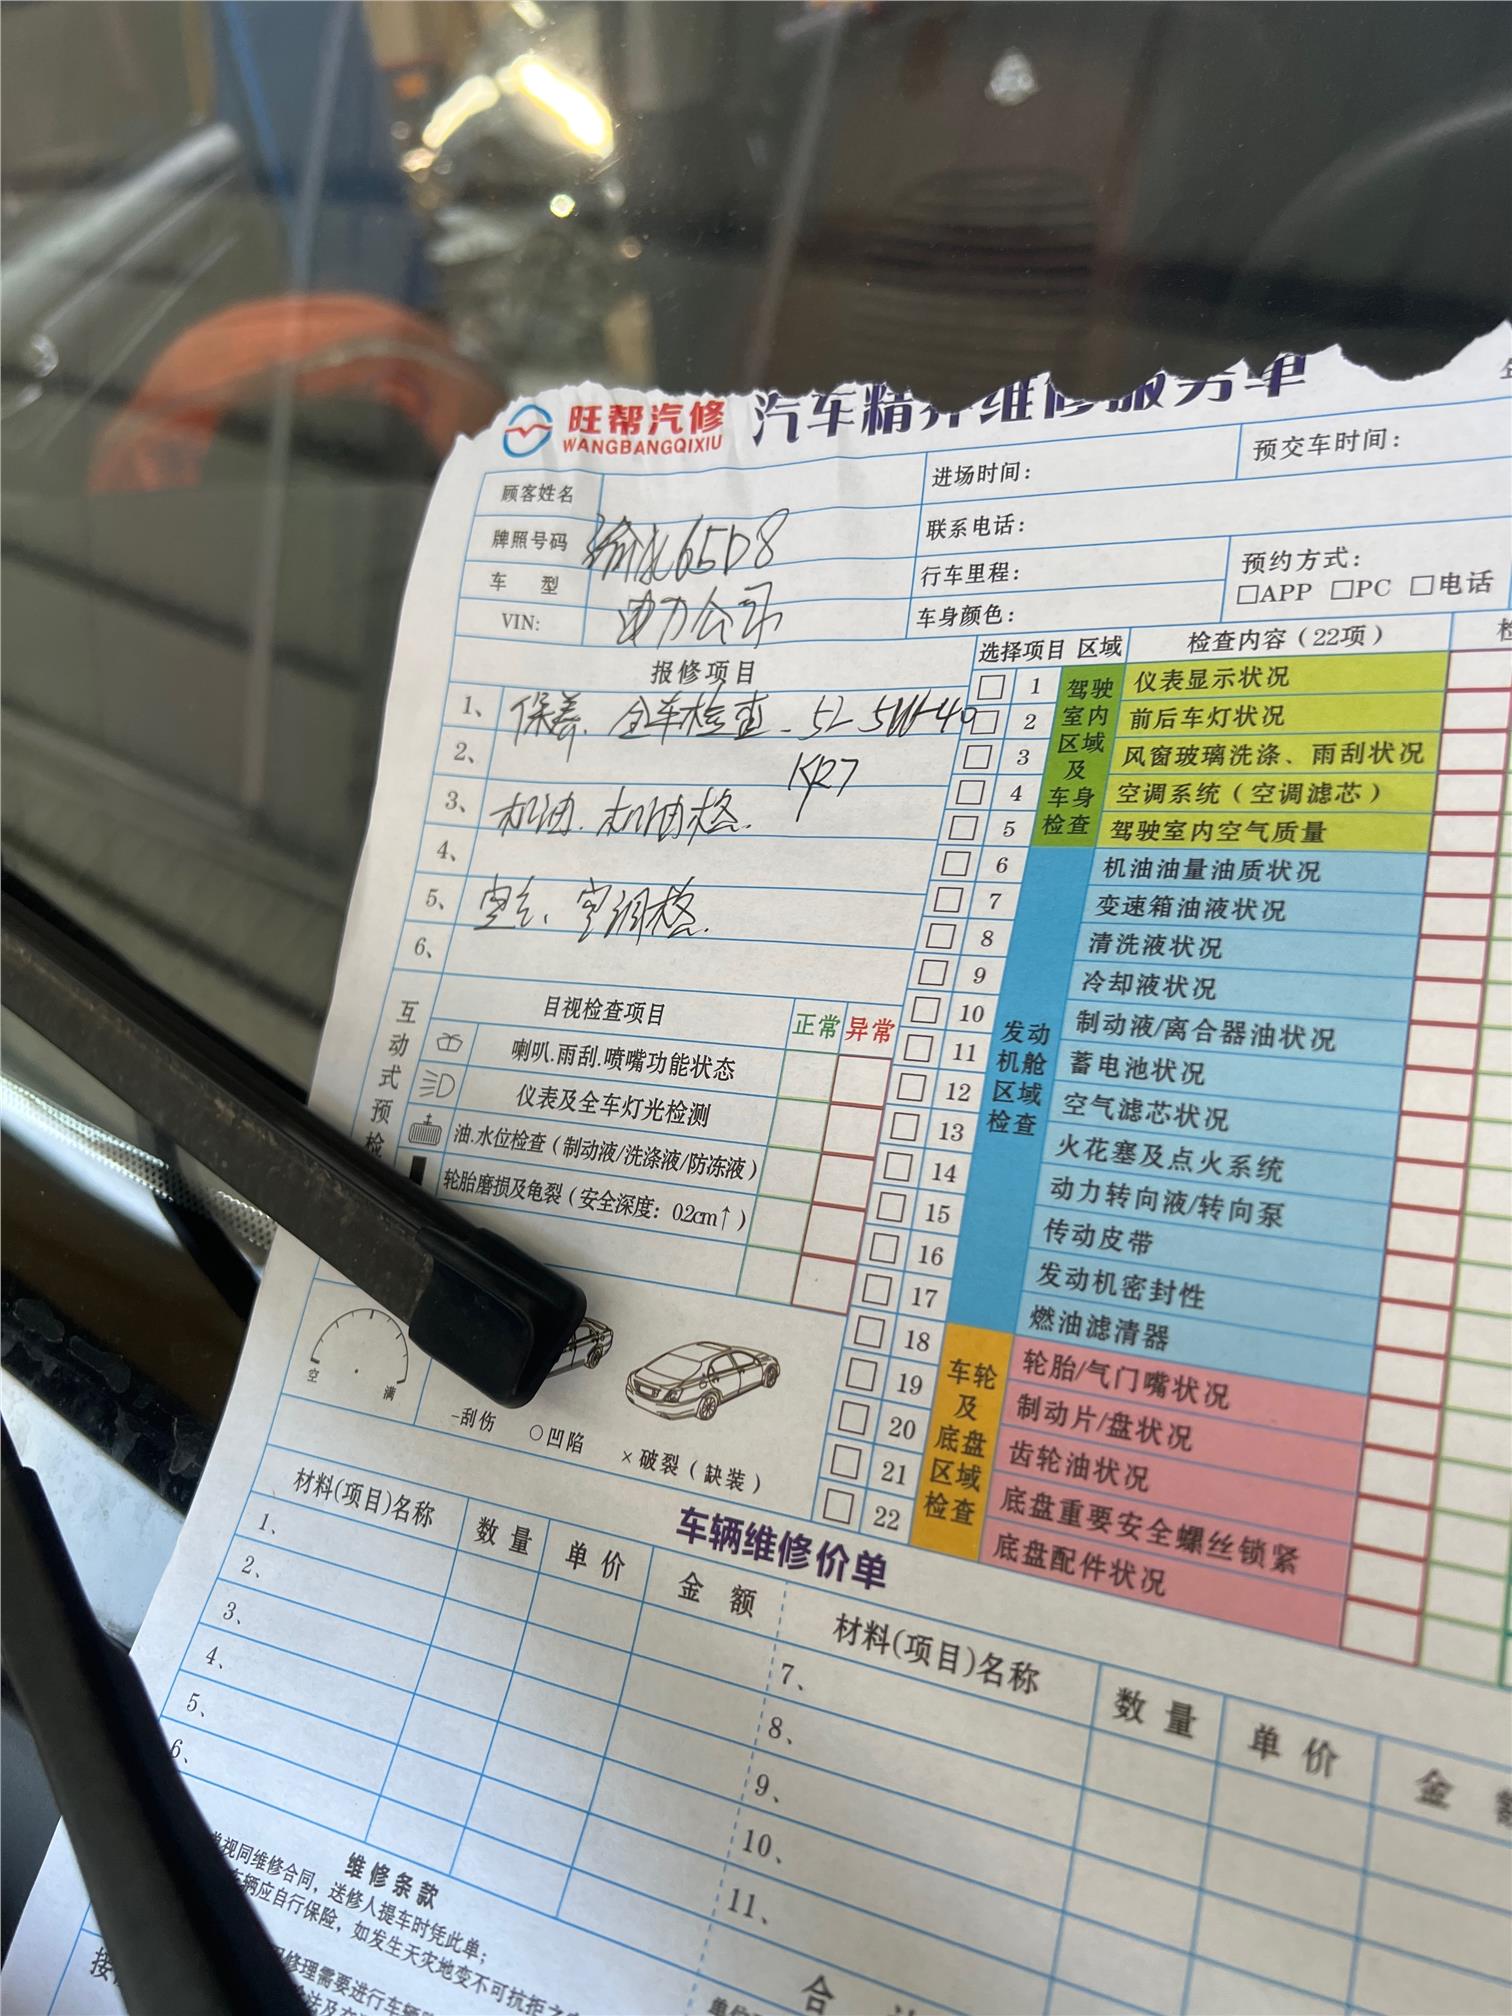 旺帮汽修 汽车精养维修服务单
WANGBANGQIXIU
顾客姓名
进场时间：
预交车时间：
牌照号码 渝 65D8
联系电话：
车 型
行车里程：
预约方式：
□APP □PC □电话
VIN: 电力公司
车身颜色：
报修项目
1、保养. 全车检查 - 5L 5W-40
2、
KR7
3、机油. 机油格.
4、
5、空气、空调格.
6、
选择项目 区域 检查内容（22项）
驾驶室内区域及车身检查
1 仪表显示状况
2 前后车灯状况
3 风窗玻璃洗涤、雨刮状况
4 空调系统（空调滤芯）
5 驾驶室内空气质量
发动机舱区域检查
6 机油油量油质状况
7 变速箱油液状况
8 清洗液状况
9 冷却液状况
10 制动液/离合器油状况
11 蓄电池状况
12 空气滤芯状况
13 火花塞及点火系统
14 动力转向液/转向泵
15 传动皮带
16 发动机密封性
17 燃油滤清器
车轮及底盘区域检查
18 轮胎/气门嘴状况
19 制动片/盘状况
20 齿轮油状况
21 底盘重要安全螺丝锁紧
22 底盘配件状况
互动式预检
目视检查项目 正常 异常
喇叭.雨刮.喷嘴功能状态
仪表及全车灯光检测
油.水位检查（制动液/洗涤液/防冻液）
轮胎磨损及龟裂（安全深度：0.2cm↑）
空 满
-刮伤 ○凹陷 ×破裂（缺装）
车辆维修价单
材料(项目)名称 数量 单价 金额
材料(项目)名称 数量 单价 金
1、
2、
3、
4、
5、
6、
7、
8、
9、
10、
11、
合
维修条款
视同维修合同，送修人提车时凭此单；
车辆应自行保险，如发生天灾地变不可抗拒之
修理需要进行车辆